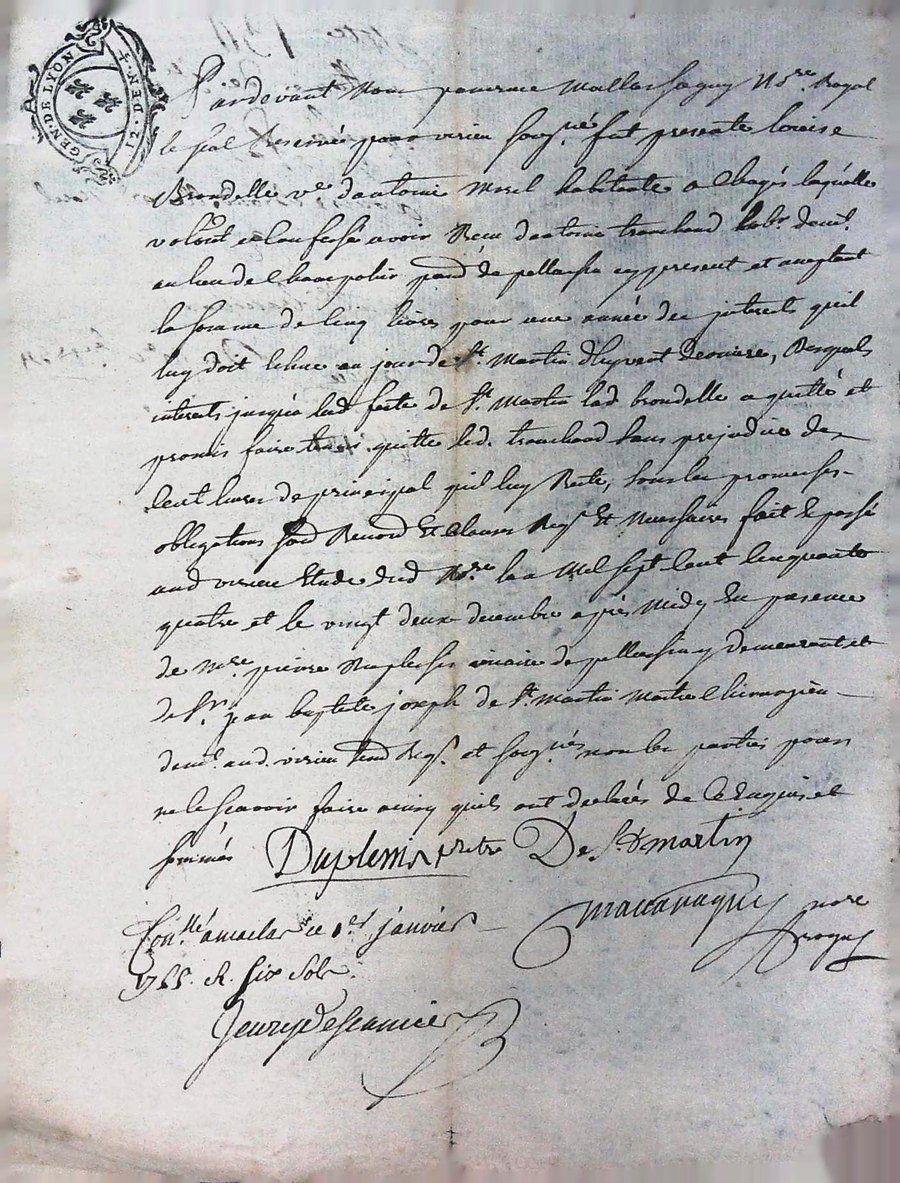 GEN. DE LYON 12. DEN. +
Pardevant Nous Nore. Royal
le pal reservé pour virieu sousné. fut presente Louise
Brondelle ve. dantoine Morel habitante a laquelle
volont. et confesse avoir Receu dantoine tranchand habt. demt.
au lieu de pard. de pellussin cy present et acceptant
la somme de Cinq livres pour une année des interets quil
luy doit echue au jour de St. Martin dhyvert derniere, Desquels
interets jusqua lad feste de St. Martin lad brondelle a quitté et
promis faire tenir quitte led. tranchand sans prejudice des
Cent livres de principal quil luy Reste, sous les promesses
obligations Renond Et Clauses Reqs. Et Necessaires fait et passé
aud virieu Etude dud Nore. lan Mil sept Cent Cinquante
quatre et le vingt deux decembre apres Midy En presence
de Mre. pierre Duplessis vicaire de pellussin y demeurant et
de Sr. jean baptiste joseph de St. Martin Maitre Chirurgien
demt. aud. virieu Reqs. et sousnés non les parties pour
ne le scavoir faire ainsy quils ont declarés de Ce Enquis et
sommés Duplessis pretre De St martin
nore
royal
Conllé a maclas ce 1er. janvier
1755. R. six sols